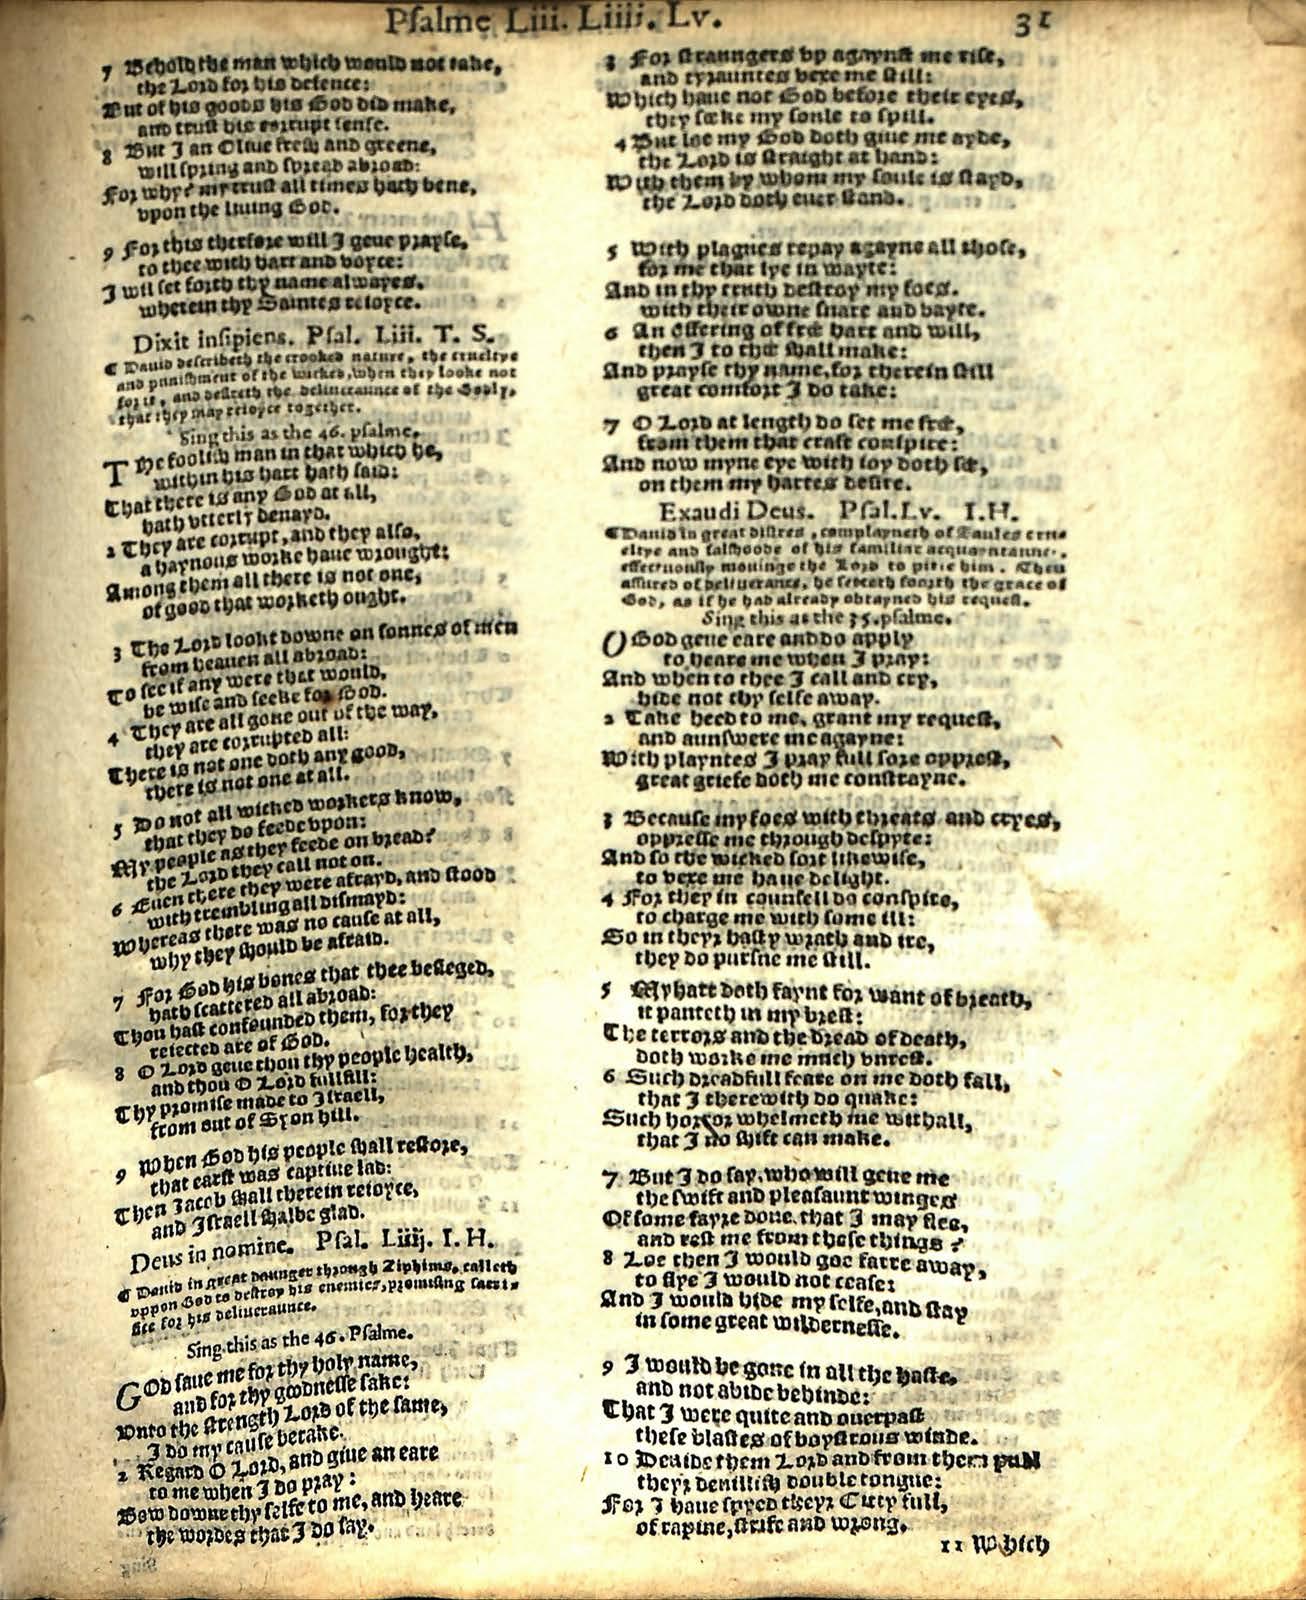 Psalme Liii. Liiii. Lv. 31
7 Behold the man which would not take,
the Lord for his defence:
But of his goods his God did make,
and trust his corrupt sense.
8 But I an Oliue fresh and greene,
will spring and spread abroad:
For why? my trust all times hath bene,
vpon the liuing God.
9 For this therfore will I geue prayse,
to thee with hart and voyce:
I wil set forth thy name alwayes,
wherein thy Saintes reioyce.
Dixit insipiens. Psal. Liii. T. S.
¶ Dauid describeth the crooked nature, the crueltye
and punishment of the wicked, when they looke not
for it, and desireth the deliueraunce of the Godly,
that they may reioyce together.
Sing this as the 46. psalme.
THe foolish man in that which he,
within his hart hath said:
That there is any God at all,
hath vtterly denayd.
2 They are corrupt, and they also,
a haynous worke haue wrought:
Among them all there is not one,
of good that worketh ought.
3 The Lord lookt downe on sonnes of men
from heauen all abroad:
To see if any were that would,
be wise and seeke for God.
4 They are all gone out of the way,
they are corrupted all:
There is not one doth any good,
there is not one at all.
5 Do not all wicked workers know,
that they do feede vpon:
My people as they feede on bread?
the Lord they call not on.
6 Euen there they were afrayd, and stood
with trembling all dismayd:
Whereas there was no cause at all,
why they should be afraid.
7 For God his bones that thee besieged,
hath scattered all abroad:
Thou hast confounded them, for they
reiected are of God.
8 O Lord geue thou thy people health,
and thou O Lord fulfill:
Thy promise made to Israell,
from out of Syon hill.
9 When God his people shall restore,
that earst was captiue lad:
Then Iacob shall therein reioyce,
and Israell shalbe glad.
Deus in nomine. Psal. Liiij. I. H.
¶ Dauid in great daunger through Ziphims, calleth
vppon God to destroy his enemies, promising sacri-
fice for his deliueraunce.
Sing this as the 46. Psalme.
GOd saue me for thy holy name,
and for thy goodnesse sake:
Vnto the strength Lord of the same,
I do my cause betake.
2 Regard O Lord, and giue an eare
to me when I do pray:
Bow downe thy selfe to me, and heare
the wordes that I do say.
3 For straungers vp agaynst me rise,
and tyrauntes vexe me still:
Which haue not God before their eyes,
they seeke my soule to spill.
4 But loe my God doth giue me ayde,
the Lord is straight at hand:
With them by whom my soule is stayd,
the Lord doth euer stand.
5 With plagues repay agayne all those,
for me that lye in wayte:
And in thy truth destroy my foes,
with their owne snare and bayte.
6 An offering of free hart and will,
then I to thee shall make:
And prayse thy name, for therein still
great comfort I do take:
7 O Lord at length do set me free,
from them that craft conspire:
And now myne eye with ioy doth see,
on them my hartes desire.
Exaudi Deus. Psal. Lv. I. H.
¶ Dauid in great distres, complayneth of Saules crue
eltye and falshoode of his familiar acquayntaunce,
effectuously mouinge the Lord to pitie him. Then
assured of deliuerance, he setteth foorth the grace of
God, as if he had already obtayned his request.
Sing this as the 35. psalme.
O God geue eare and do apply
to heare me when I pray:
And when to thee I call and cry,
hide not thy selfe away.
2 Take heed to me, grant my request,
and aunswere me agayne:
With playntes I pray full sore opprest,
great griefe doth me constrayne.
3 Because my foes with threats and cryes,
oppresse me through despyte:
And so the wicked sort likewise,
to vexe me haue delight.
4 For they in counsell do conspire,
to charge me with some ill:
So in theyr hasty wrath and ire,
they do pursue me still.
5 My hart doth faynt for want of breath,
it panteth in my brest:
The terrors and the dread of death,
doth worke me much vnrest.
6 Such dreadfull feare on me doth fall,
that I therewith do quake:
Such horror whelmeth me withall,
that I no shift can make.
7 But I do say, who will geue me
the swift and pleasaunt winges
Of some fayre doue, that I may flee,
and rest me from these things?
8 Loe then I would goe farre away,
to flye I would not cease:
And I would hide my selfe, and stay
in some great wildernesse.
9 I would be gone in all the haste,
and not abide behinde:
That I were quite and ouerpast
these blastes of boystrous winde.
10 Deuide them Lord and from them pull
theyr deuillish double tongue:
For I haue spyed theyr Citty full,
of rapine, strife and wrong.
11 Which